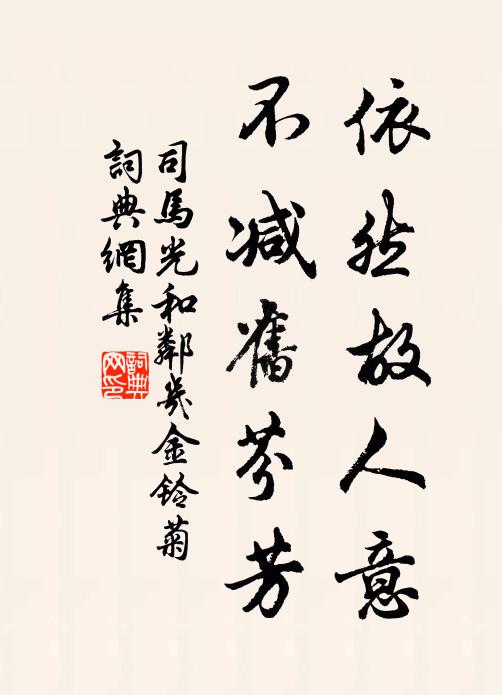 依然故人意
不減舊芬芳
司馬光和鄰幾金鈴菊
詞典網集
詞典
网印